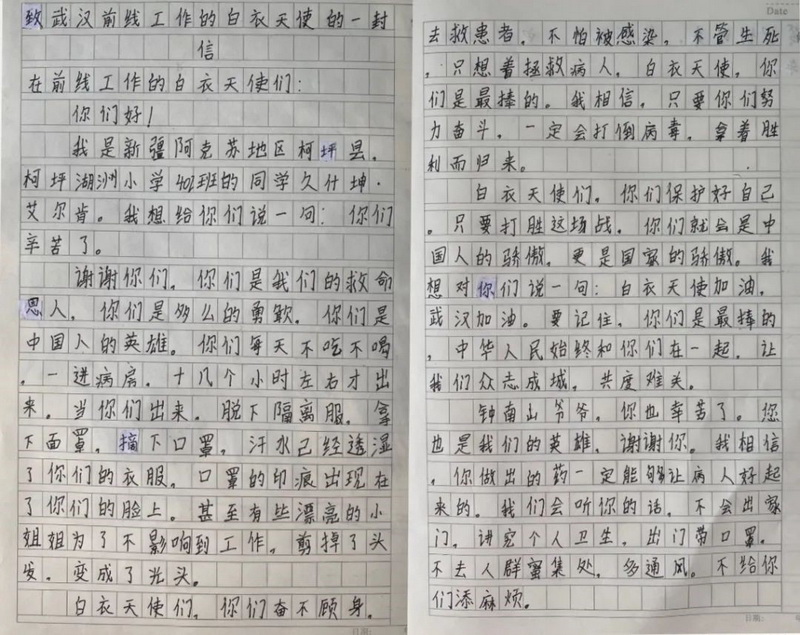 致武汉前线工作的白衣天使的一封
信
在前线工作的白衣天使们：
你们好！
我是新疆阿克苏地区柯坪县，
柯坪湖洲小学402班的同学久什坤·
艾尔肯。我想给你们说一句：你们
辛苦了。
谢谢你们，你们是我们的救命
恩人，你们是多么的勇敢，你们是
中国人的英雄。你们每天不吃不喝
，一进病房，十几个小时左右才出
来，当你们出来，脱下隔离服，拿
下面罩，摘下口罩，汗水已经透湿
了你们的衣服，口罩的印痕出现在
了你们的脸上。甚至有些漂亮的小
姐姐为了不影响到工作，剪掉了头
发，变成了光头。
白衣天使们，你们奋不顾身，
Date
去救患者，不怕被感染，不管生死
，只想着拯救病人，白衣天使，你
们是最捧的。我相信，只要你们努
力奋斗，一定会打倒病毒，拿着胜
利而归来。
白衣天使们，你们保护好自己
，只要打胜这场战，你们就会是中
国人的骄傲，更是国家的骄傲。我
想对你们说一句：白衣天使加油，
武汉加油。要记住，你们是最捧的
，中华人民始终和你们在一起，让
我们众志成城，共度难关。
钟南山爷爷，你也幸苦了。您
也是我们的英雄，谢谢你。我相信
，你做出的药一定能够让病人好起
来的。我们会听你的话，不会出家
门，讲究个人卫生，出门带口罩，
不去人群蜜集处，多通风。不给你
们添麻烦。
日期：
日期：